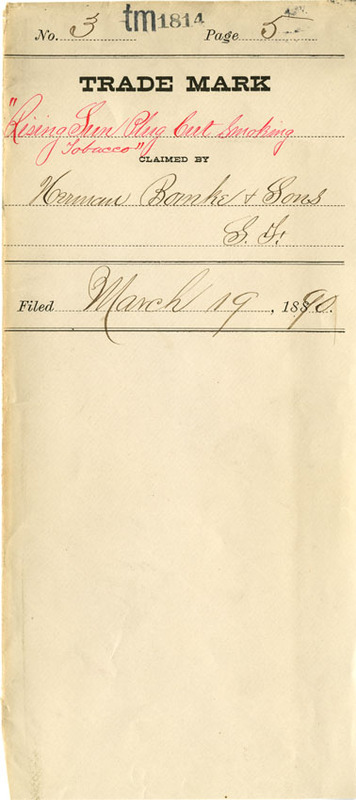 tm1814
No. 3 Page 5
TRADE MARK
"Rising Sun Plug Cut Smoking
Tobacco"
CLAIMED BY
Herman Banke & Sons
S. F.
Filed March 19, 1890.